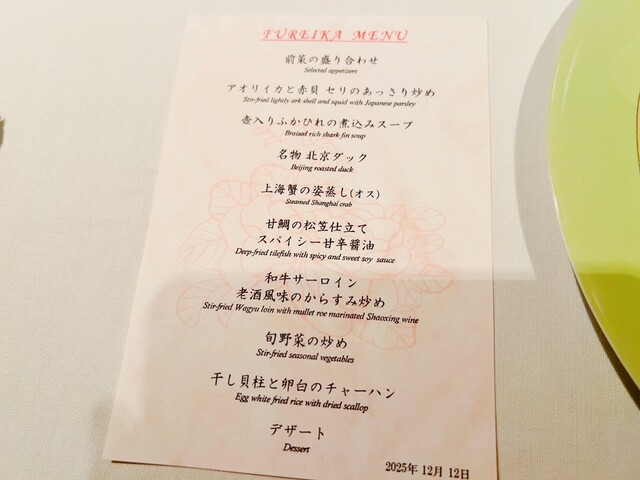 FUREIKA MENU
前菜の盛り合わせ
Selected appetizers
アオリイカと赤貝 セリのあっさり炒め
Stir-fried lightly ark shell and squid with Japanese parsley
壺入りふかひれの煮込みスープ
Braised rich shark fin soup
名物 北京ダック
Beijing roasted duck
上海蟹の姿蒸し(オス)
Steamed Shanghai crab
甘鯛の松笠仕立て
スパイシー甘辛醤油
Deep-fried tilefish with spicy and sweet soy sauce
和牛サーロイン
老酒風味のからすみ炒め
Stir-fried Wagyu loin with mullet roe marinated Shaoxing wine
旬野菜の炒め
Stir-fried seasonal vegetables
干し貝柱と卵白のチャーハン
Egg white fried rice with dried scallop
デザート
Dessert
2025年 12月 12日